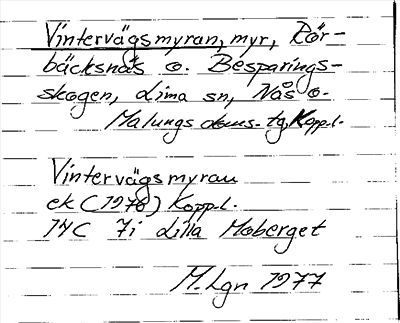 Vintervägsmyran, myr, Rör-
bäcksnäs o. Besparings-
skogen, Lima sn, Nås o.
Malungs doms. tg, Koppl.
Vintervägsmyran
ek (1976) Koppl.
14C 7i Lilla Moberget
M. Lgn 1977